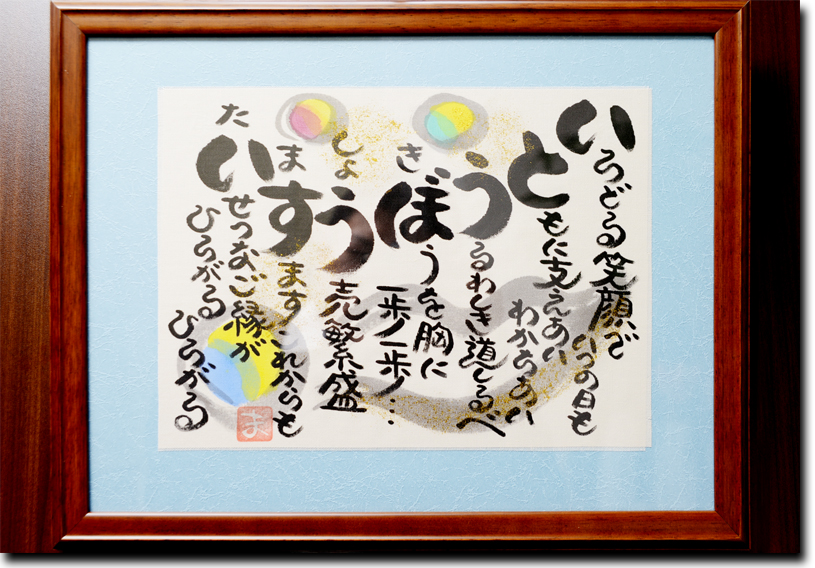 いろどる笑顔で
いつの日も
ともに支えあい
わかちあい
うるわしき道しるべ
きぼうを胸に
一歩一歩…
しょう売繁盛
ますます
これからも
たいせつなご縁が
ひろがる
ひろがる
ま